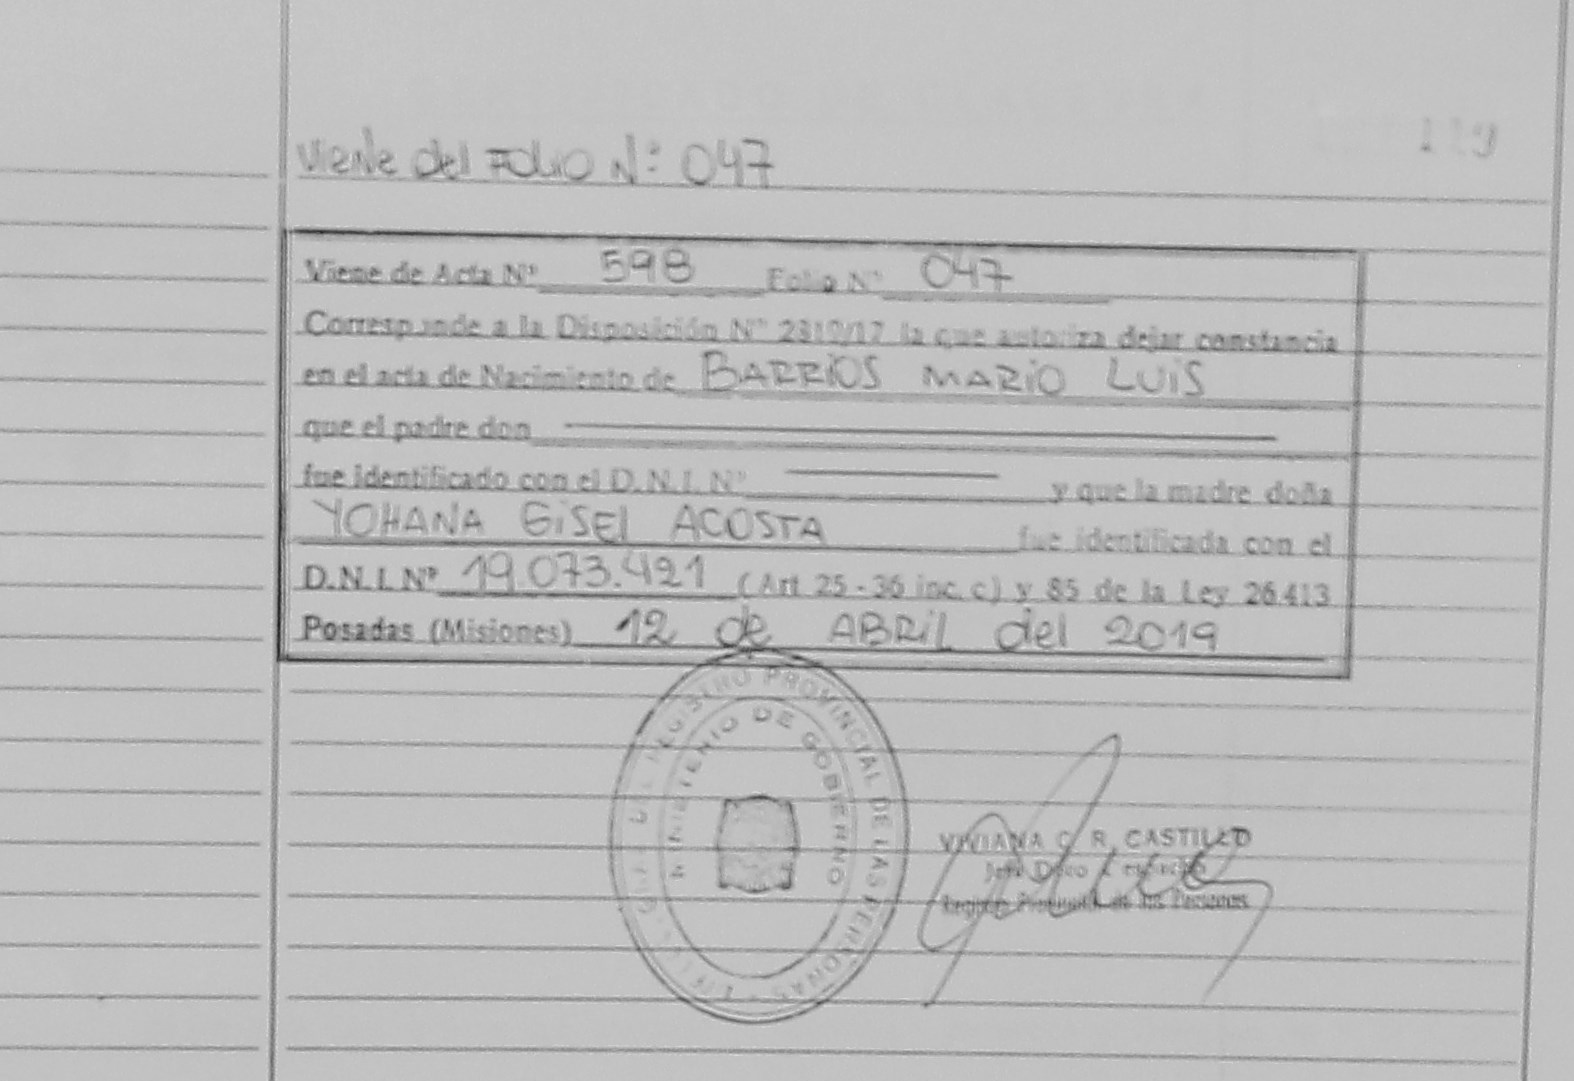 Viene del Folio N: 047
119
Viene de Acta Nº 598 Folio Nº 047
Corresponde a la Disposición Nº 2319/17 la que autoriza dejar constancia
en el acta de Nacimiento de BARRIOS MARIO LUIS
que el padre don
fue identificado con el D.N.I. Nº y que la madre doña
YOHANA GISEL ACOSTA fue identificada con el
D.N.I. Nº 19.073.421 (Art 25 - 36 inc. c) y 85 de la Ley 26413
Posadas (Misiones) 12 de ABRIL del 2019
REGISTRO PROVINCIAL DE LAS PERSONAS
MINISTERIO DE GOBIERNO
VIVIANA C. R. CASTILLO
Registro Provincial de las Personas